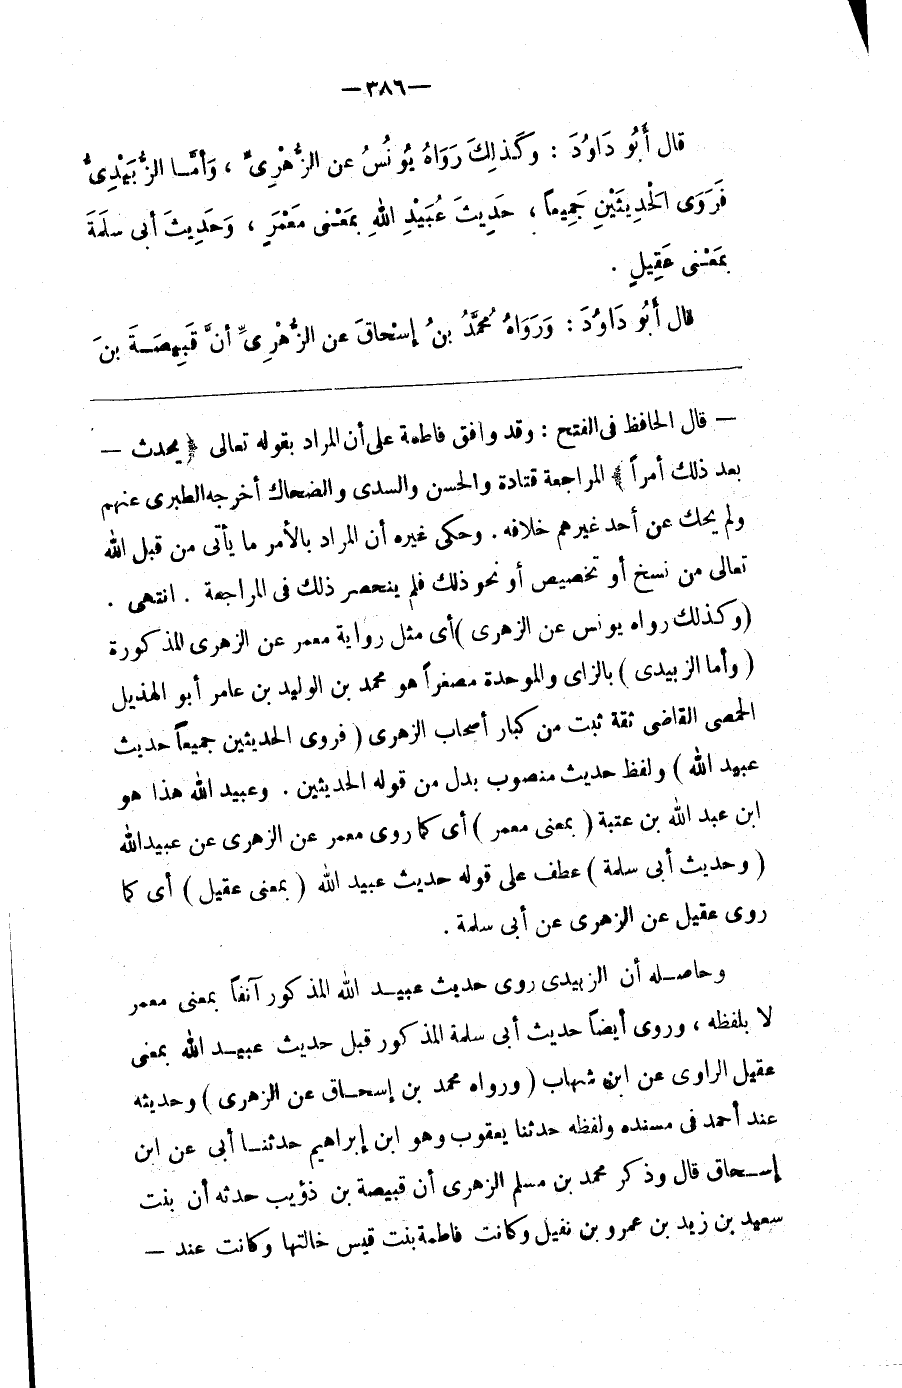 —٣٨٦—
قال أَبُو دَاوُدَ : وكَذلِكَ رَوَاهُ يُونُسُ عن الزُّهْرِىِّ ، وَأمَّا الزُّبَيْدِىُّ
فَرَوَى الْحَدِيثَيْنِ جَمِيعاً ، حَدِيثَ عُبَيْدِ اللهِ بِمَعْنى مَعْمَرٍ ، وَحَدِيثَ أبى سلَمَةَ
بمَعْنى عَقِيلٍ .
قال أَبُو دَاوُدَ : وَرَوَاهُ مُحمَّدُ بنُ إسْحَاقَ عن الزُّهْرِىِّ أنَّ قَبِيصَةَ بنَ
— قال الحافظ فى الفتح : وقد وافق فاطمة على أن المراد بقوله تعالى ﴿ يحدث —
بعد ذلك أمراً ﴾ المراجعة قتادة والحسن والسدى والضحاك أخرجه الطبرى عنهم
ولم يحك عن أحد غيرهم خلافه . وحكى غيره أن المراد بالأمر ما يأتى من قبل الله
تعالى من نسخ أو تخصيص أو نحو ذلك فلم ينحصر ذلك فى المراجعة . انتهى .
(وكذلك رواه يونس عن الزهرى ) أى مثل رواية معمر عن الزهرى المذكورة
( وأما الزبيدى ) بالزاى والموحدة مصغراً هو محمد بن الوليد بن عامر أبو الهذيل
الحمصى القاضى ثقة ثبت من كبار أصحاب الزهرى ( فروى الحديثين جميعاً حديث
عبيد الله ) ولفظ حديث منصوب بدل من قوله الحديثين . وعبيد الله هذا هو
ابن عبد الله بن عتبة ( بمعنى معمر ) أى كما روى معمر عن الزهرى عن عبيدالله
( وحديث أبى سلمة ) عطف على قوله حديث عبيد الله ( بمعنى عقيل ) أى كما
روى عقيل عن الزهرى عن أبى سلمة .
وحاصله أن الزبيدى روى حديث عبيد الله المذكور آنفاً بمعنى معمر
لا بلفظه ، وروى أيضاً حديث أبى سلمة المذكور قبل حديث عبيد الله بمعنى
عقيل الراوى عن ابن شهاب ( ورواه محمد بن إسحاق عن الزهرى ) وحديثه
عند أحمد فى مسنده ولفظه حدثنا يعقوب وهو ابن إبراهيم حدثنا أبى عن ابن
إسحاق قال وذكر محمد بن مسلم الزهرى أن قبيصة بن ذؤيب حدثه أن بنت
سعيد بن زيد بن عمرو بن نفيل وكانت فاطمة بنت قيس خالتها وكانت عند —